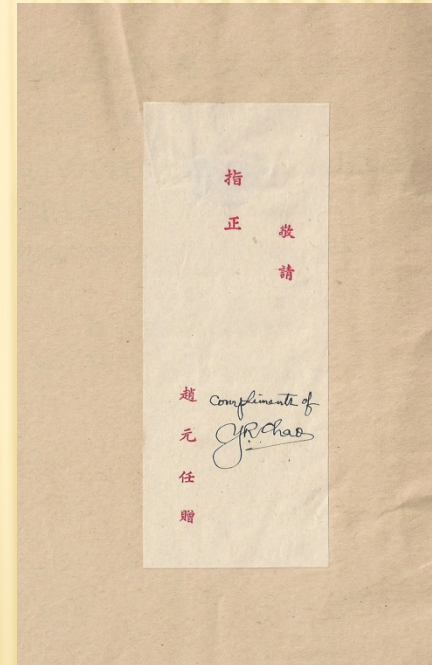 敬請
指正
Compliments of
YR Chao
趙元任贈